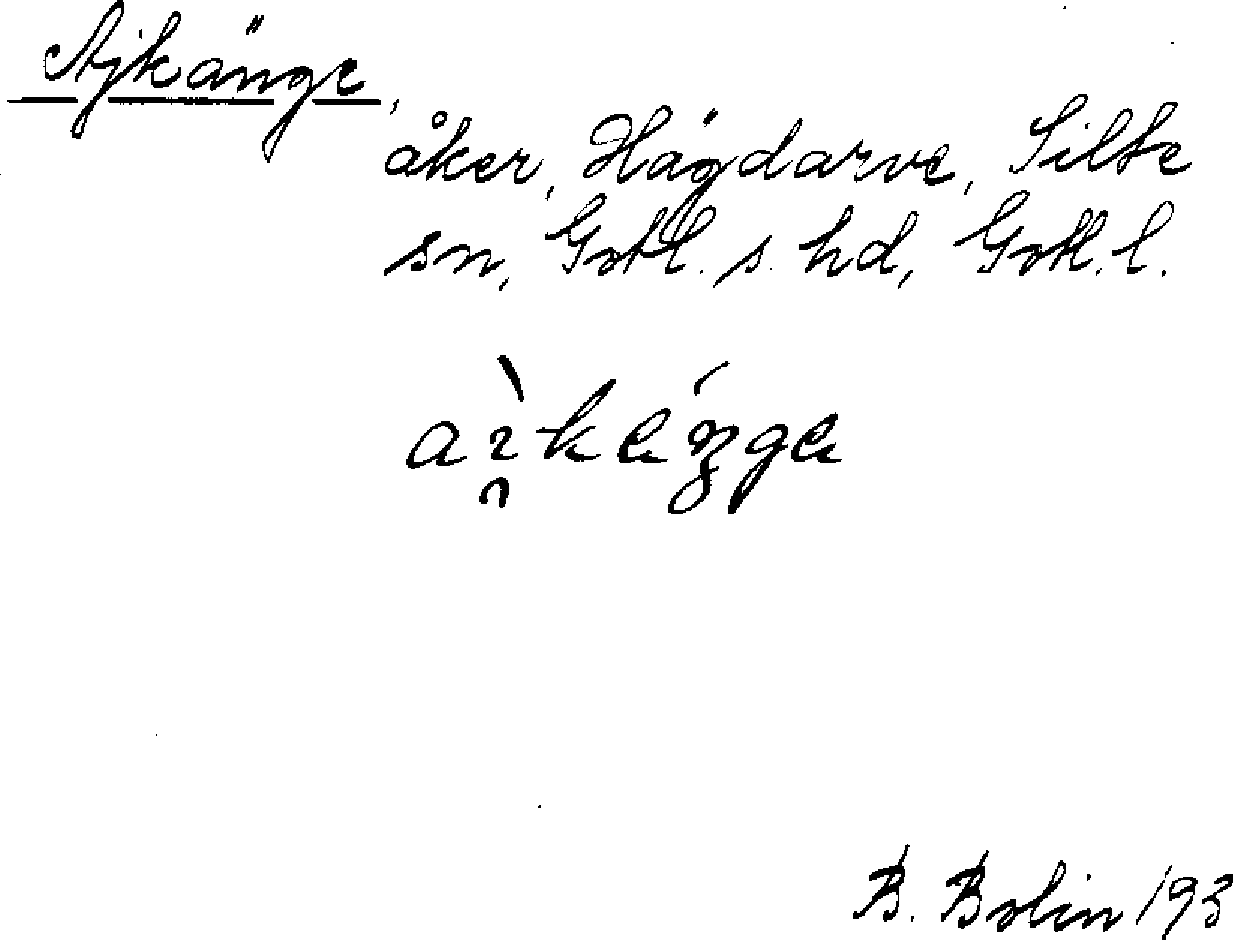 Ajkänge,
åker, Hägdarve, Silte
sn, Gotl. s. hd, Gotl. l.
B. Bolin 193